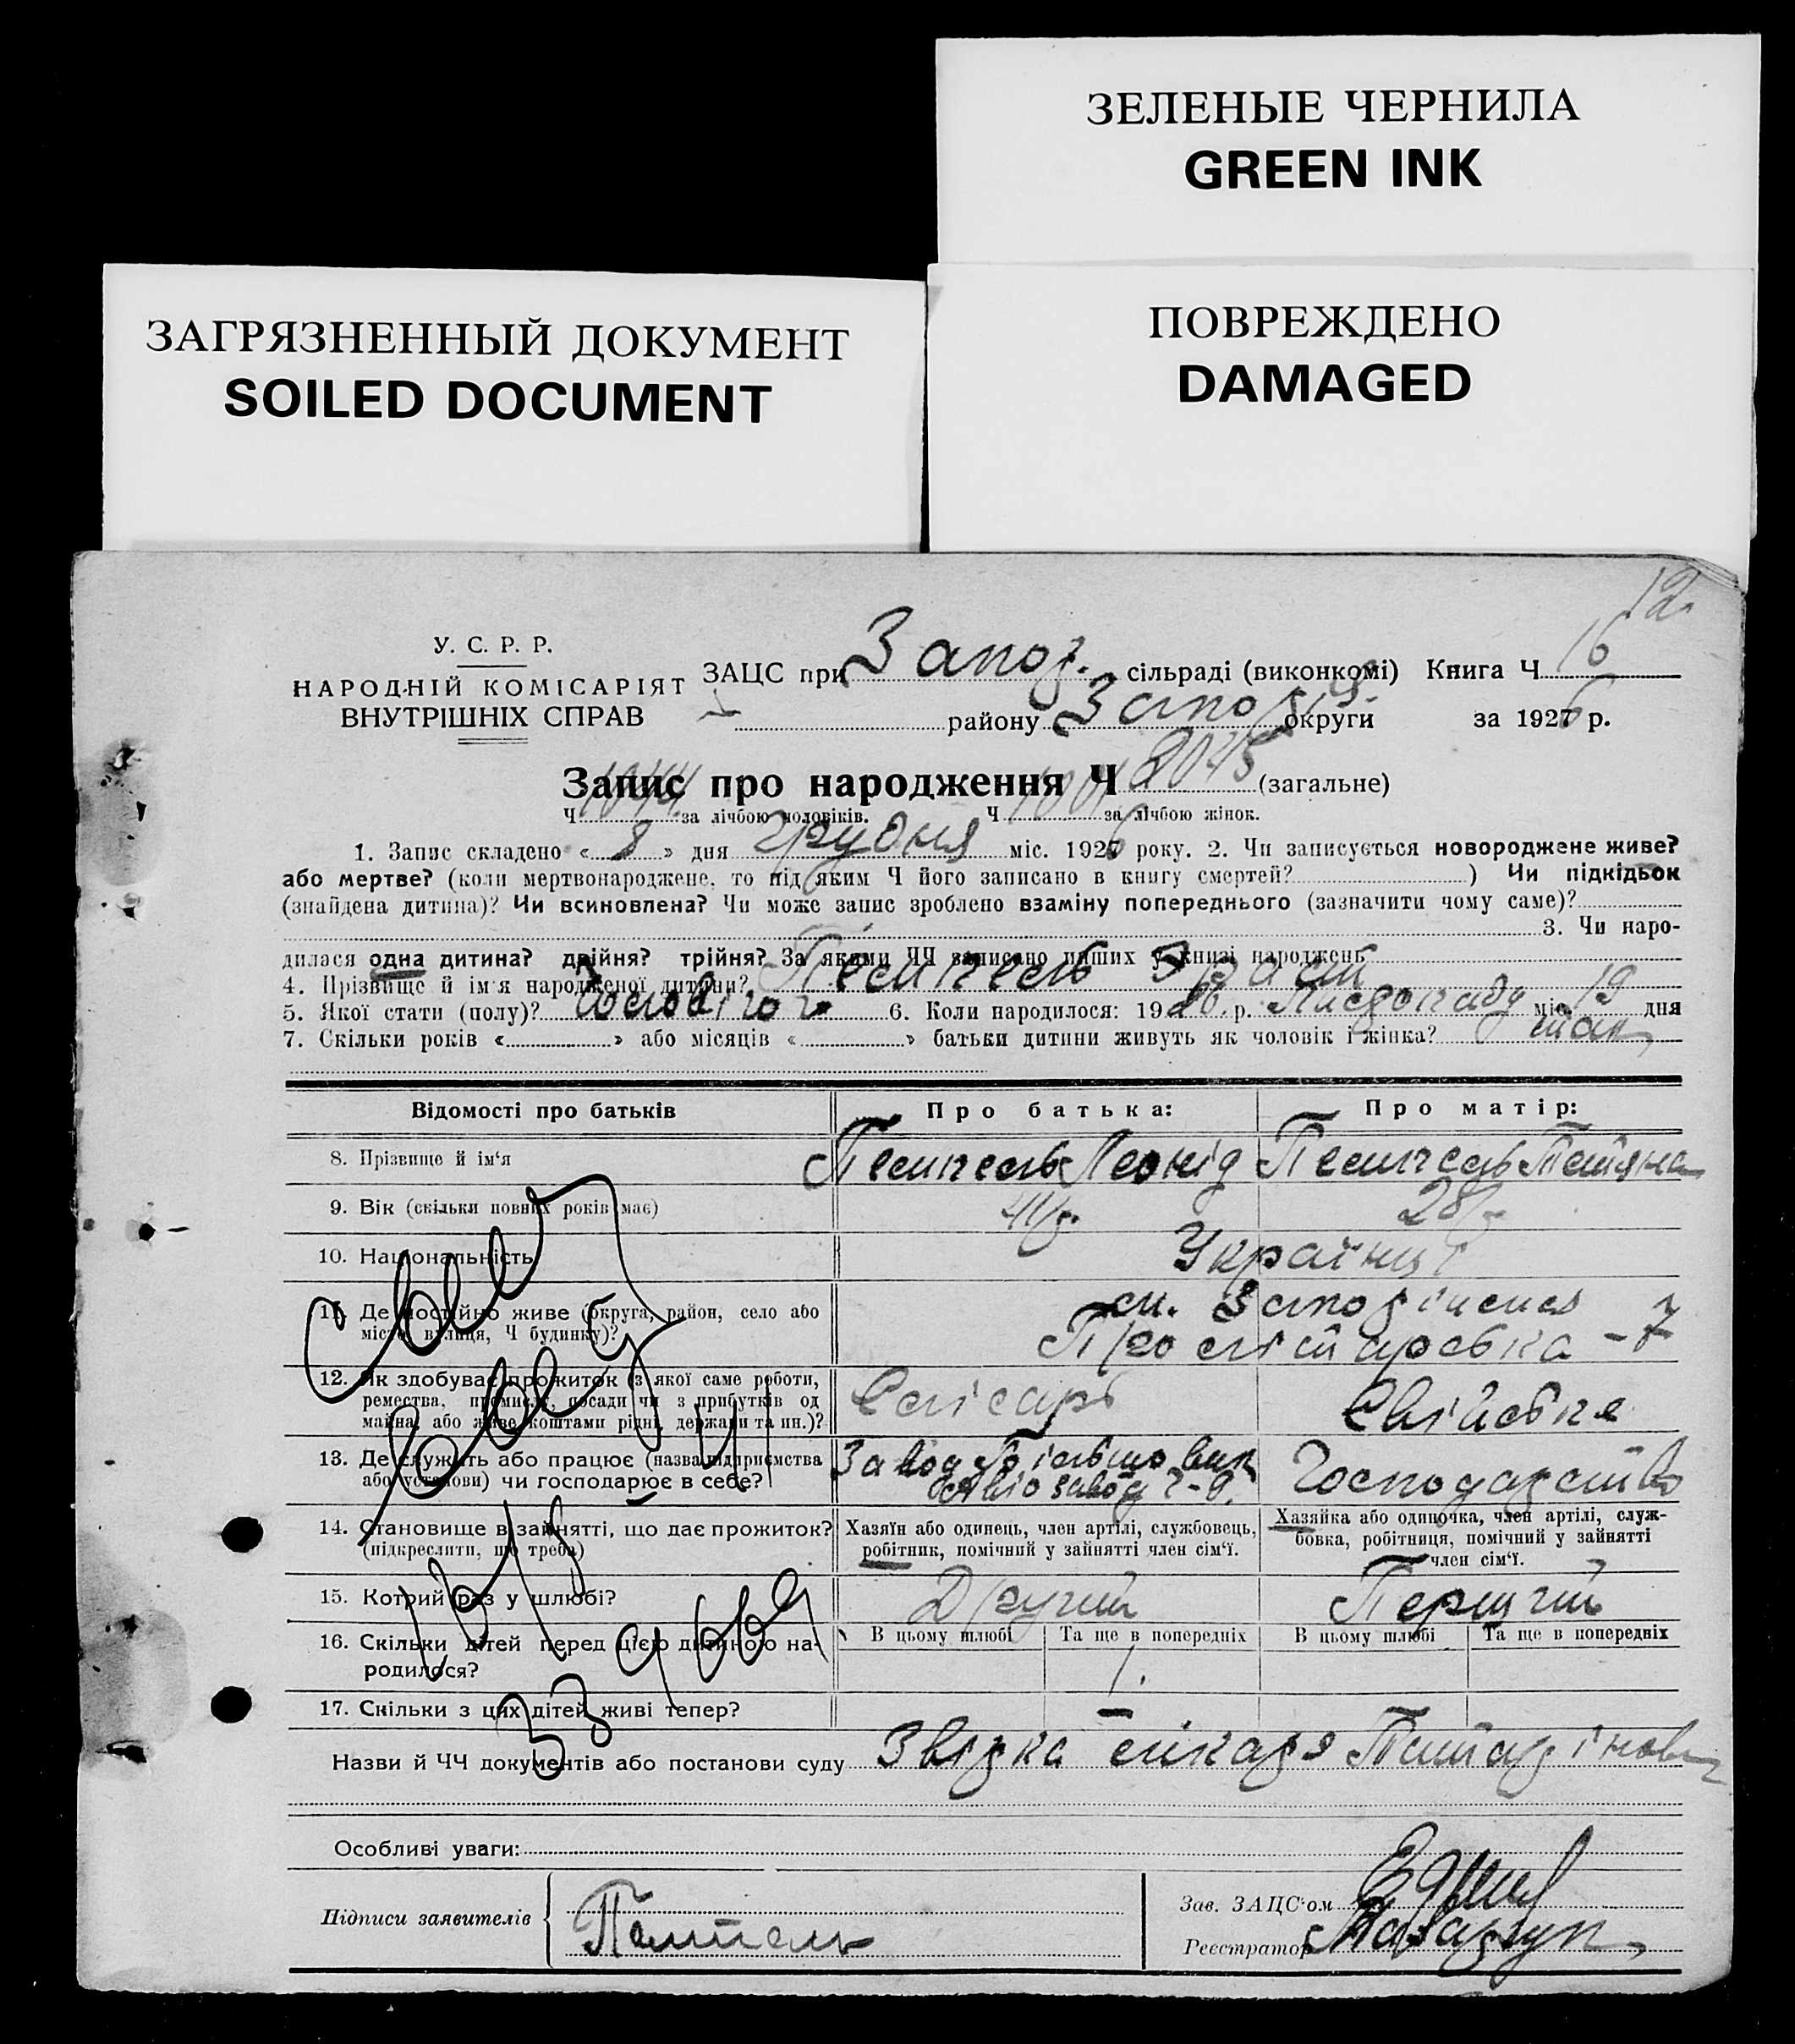 ЗЕЛЕНЫЕ ЧЕРНИЛА
GREEN INK
ЗАГРЯЗНЕННЫЙ ДОКУМЕНТ
SOILED DOCUMENT
ПОВРЕЖДЕНО
DAMAGED
12
У. С. Р. Р.
НАРОДНІЙ КОМІСАРІЯТ
ВНУТРІШНІХ СПРАВ
ЗАЦС при Запор. сільраді (виконкомі) Книга Ч 16
району Запоріз. округи за 1926 р.
Запис про народження Ч 2045 (загальне)
Ч 1044 за лічбою чоловіків. Ч 1001 за лічбою жінок.
1. Запис складено « 8 » дня грудня міс. 1926 року. 2. Чи записується новороджене живе?
або мертве? (коли мертвонароджене, то під яким Ч його записано в книгу смертей? ) Чи підкідьок
(знайдена дитина)? Чи всиновлена? Чи може запис зроблено взаміну попереднього (зазначити чому саме)?
3. Чи наро-
дилася одна дитина? двійня? трійня? За якими ЧЧ записано инших у книзі народжень
4. Прізвище й ім'я народженої дитини?
5. Якої стати (полу)? Чоловічої 6. Коли народилося: 1926 р. Листопаду міс. 19 дня
7. Скільки років « » або місяців « » батьки дитини живуть як чоловік і жінка? так
Відомості про батьків Про батька: Про матір:
8. Прізвище й ім'я Леонід Тетяна
9. Вік (скільки повних років має) 41 р. 28 р.
10. Національність Українці
11. Де постійно живе (округа, район, село або
місто, вулиця, Ч будинку)? см. Запоріжжя
- 7
12. Як здобуває прожиток (з якої саме роботи,
ремества, промислу, посади чи з прибутків од
майна, або живе коштами рідні, держави та ин.)? Слісарь Свійське
13. Де служить або працює (назва підприємства
або установи) чи господарює в себе? Завод Більшовик Авіозавод Ч-9. Господарство
14. Становище в зайнятті, що дає прожиток?
(підкреслити, що треба)
Хазяїн або одинець, член артілі, службовець,
робітник, помічний у зайнятті член сім'ї.
Хазяйка або одиночка, член артілі, служ-
бовка, робітниця, помічний у зайнятті
член сім'ї.
15. Котрий раз у шлюбі? Другий Перший
16. Скільки дітей перед цією дитиною на-
родилося?
В цьому шлюбі Та ще в попередніх В цьому шлюбі Та ще в попередніх
1.
17. Скільки з цих дітей живі тепер? –
Назви й ЧЧ документів або постанови суду Звідка лікаря
Особливі уваги:
Підписи заявителів
Зав. ЗАЦС'ом
Реєстратор